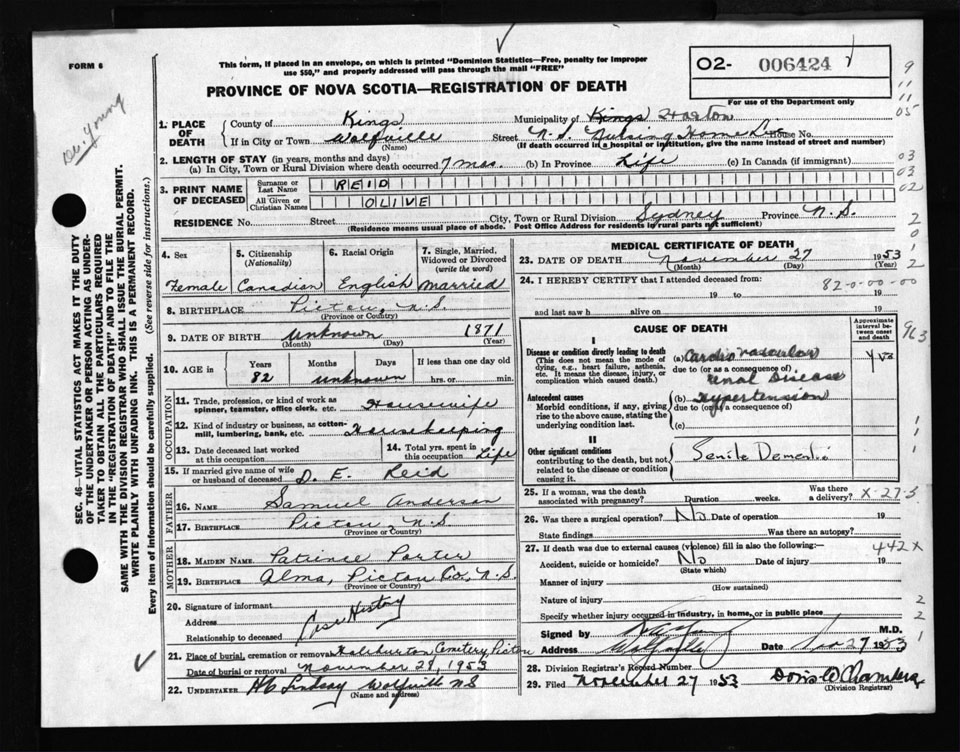 FORM 6
This form, if placed in an envelope, on which is printed "Dominion Statistics—Free, penalty for improper
use $50," and properly addressed will pass through the mail "FREE"
O2- 006424
For use of the Department only
PROVINCE OF NOVA SCOTIA—REGISTRATION OF DEATH
Dr. Young
SEC. 46—VITAL STATISTICS ACT MAKES IT THE DUTY
OF THE UNDERTAKER OR PERSON ACTING AS UNDER-
TAKER TO OBTAIN ALL THE PARTICULARS REQUIRED
IN THE "REGISTRATION OF DEATH" AND TO FILE THE
SAME WITH THE DIVISION REGISTRAR WHO SHALL ISSUE THE BURIAL PERMIT.
WRITE PLAINLY WITH UNFADING INK. THIS IS A PERMANENT RECORD.
Every item of information should be carefully supplied. (See reverse side for instructions.)
1. PLACE OF DEATH County of Kings Municipality of Kings
If in City or Town Wolfville (Name) Street N.S. Nursing Home House No.
(If death occurred in a hospital or institution, give the name instead of street and number)
2. LENGTH OF STAY (in years, months and days)
(a) In City, Town or Rural Division where death occurred 7 mos. (b) In Province Life (c) In Canada (if immigrant)
3. PRINT NAME OF DECEASED Surname or Last Name REID
All Given or Christian Names OLIVE
RESIDENCE No. Street City, Town or Rural Division Sydney Province N.S.
(Residence means usual place of abode. Post Office Address for residents in rural parts not sufficient)
4. Sex Female
5. Citizenship (Nationality) Canadian
6. Racial Origin English
7. Single, Married, Widowed or Divorced (write the word) Married
8. BIRTHPLACE Pictou, N.S.
(Province or Country)
9. DATE OF BIRTH Unknown 1871
(Month) (Day) (Year)
10. AGE in Years 82 Months Unknown Days If less than one day old hrs. or min.
OCCUPATION
11. Trade, profession, or kind of work as spinner, teamster, office clerk, etc. Housewife
12. Kind of industry or business, as cotton-mill, lumbering, bank, etc. Housekeeping
13. Date deceased last worked at this occupation
14. Total yrs. spent in this occupation Life
15. If married give name of wife or husband of deceased D. E. Reid
FATHER
16. NAME Samuel Anderson
17. BIRTHPLACE Pictou, N.S.
(Province or Country)
MOTHER
18. MAIDEN NAME Porter
19. BIRTHPLACE Alma, Pictou Co., N.S.
(Province or Country)
20. Signature of informant
Address Case History
Relationship to deceased
21. Place of burial, cremation or removal Haliburton Cemetery, Pictou
Date of burial or removal November 28, 1953
22. UNDERTAKER HC Lindsay Wolfville NS
(Name and address)
MEDICAL CERTIFICATE OF DEATH
23. DATE OF DEATH November 27 1953
(Month) (Day) (Year)
24. I HEREBY CERTIFY that I attended deceased from: 82-0-00-00
19 to 19
and last saw h alive on 19
CAUSE OF DEATH
Approximate interval between onset and death
I
Disease or condition directly leading to death
(This does not mean the mode of dying, e.g., heart failure, asthenia, etc. It means the disease, injury, or complication which caused death.)
(a) Cardio vascular
due to (or as a consequence of)
renal Disease
Antecedent causes
Morbid conditions, if any, giving rise to the above cause, stating the underlying condition last.
(b) Hypertension
due to (or as a consequence of)
(c)
II
Other significant conditions
contributing to the death, but not related to the disease or condition causing it.
Senile Dementia
25. If a woman, was the death associated with pregnancy? Duration weeks. Was there a delivery?
26. Was there a surgical operation? No Date of operation 19
State findings Was there an autopsy?
27. If death was due to external causes (violence) fill in also the following:— 442X
Accident, suicide or homicide? No (State which) Date of injury 19
Manner of injury
(How sustained)
Nature of injury
Specify whether injury occurred in industry, in home, or in public place
Signed by M.D.
Address Wolfville Date Nov 27 1953
28. Division Registrar's Record Number
29. Filed November 27 1953 Doris W Chambers
(Division Registrar)